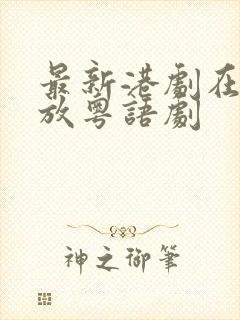 最新港劇在
放粵語劇
神之御筆